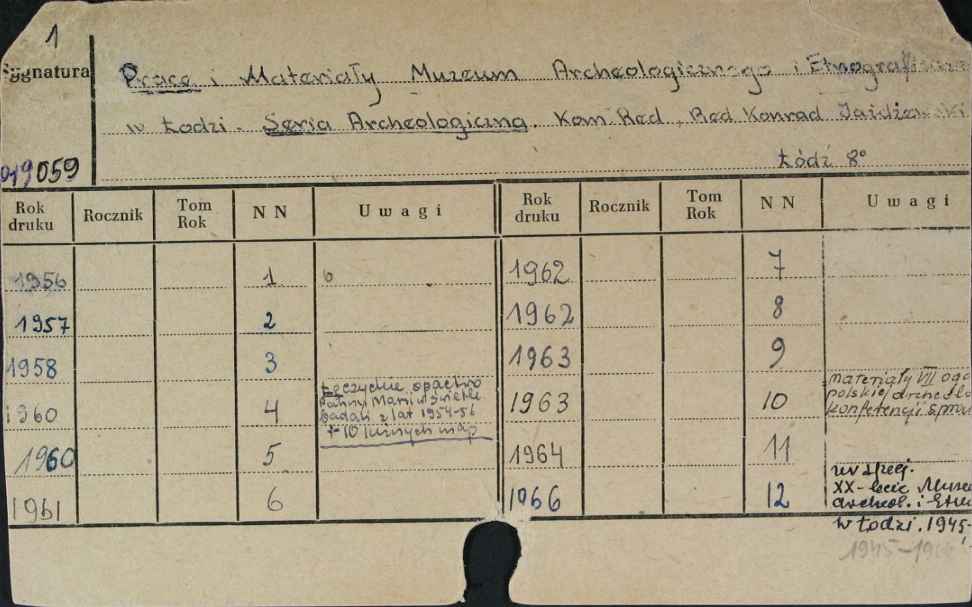 1
Sygnatura
Prace i Materiały Muzeum Archeologicznego i Etnograficzne
w Łodzi. Seria Archeologiczna. Kom. Red. Red Konrad Jażdżewski.
Łódź 8°
019059
Rok druku Rocznik Tom Rok NN Uwagi Rok druku Rocznik Tom Rok NN Uwagi
1956 1 1962 7
1957 2 1962 8
1958 3 1963 9
1960 4 Łęczyckie opactwo
Panny Marii w świetle
badań z lat 1954-56
+ 10 luźnych map
1963 10 materiały VII ogó
polskiej archeolo
konferencji
1960 5 1964 11
1961 6 1966 12 nr spec.
XX-lecie Muze
archeol. i Etn
w Łodzi. 1945-
1945-196